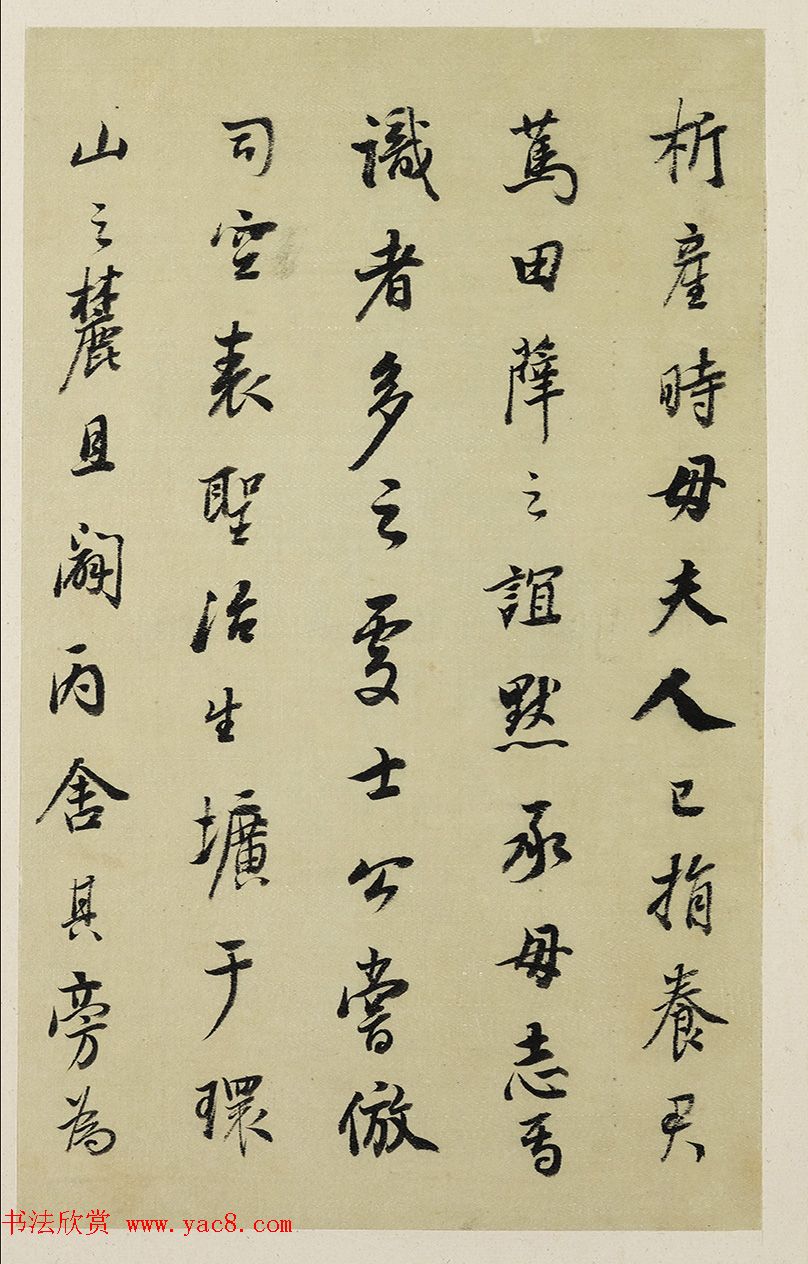 析產時母夫人已捐養君
篤田薛之誼默承母志焉
識者多之處士公嘗倣
司空表聖治生壙于環
山之麓且闢丙舍其旁為
书法欣赏 www.yac8.com